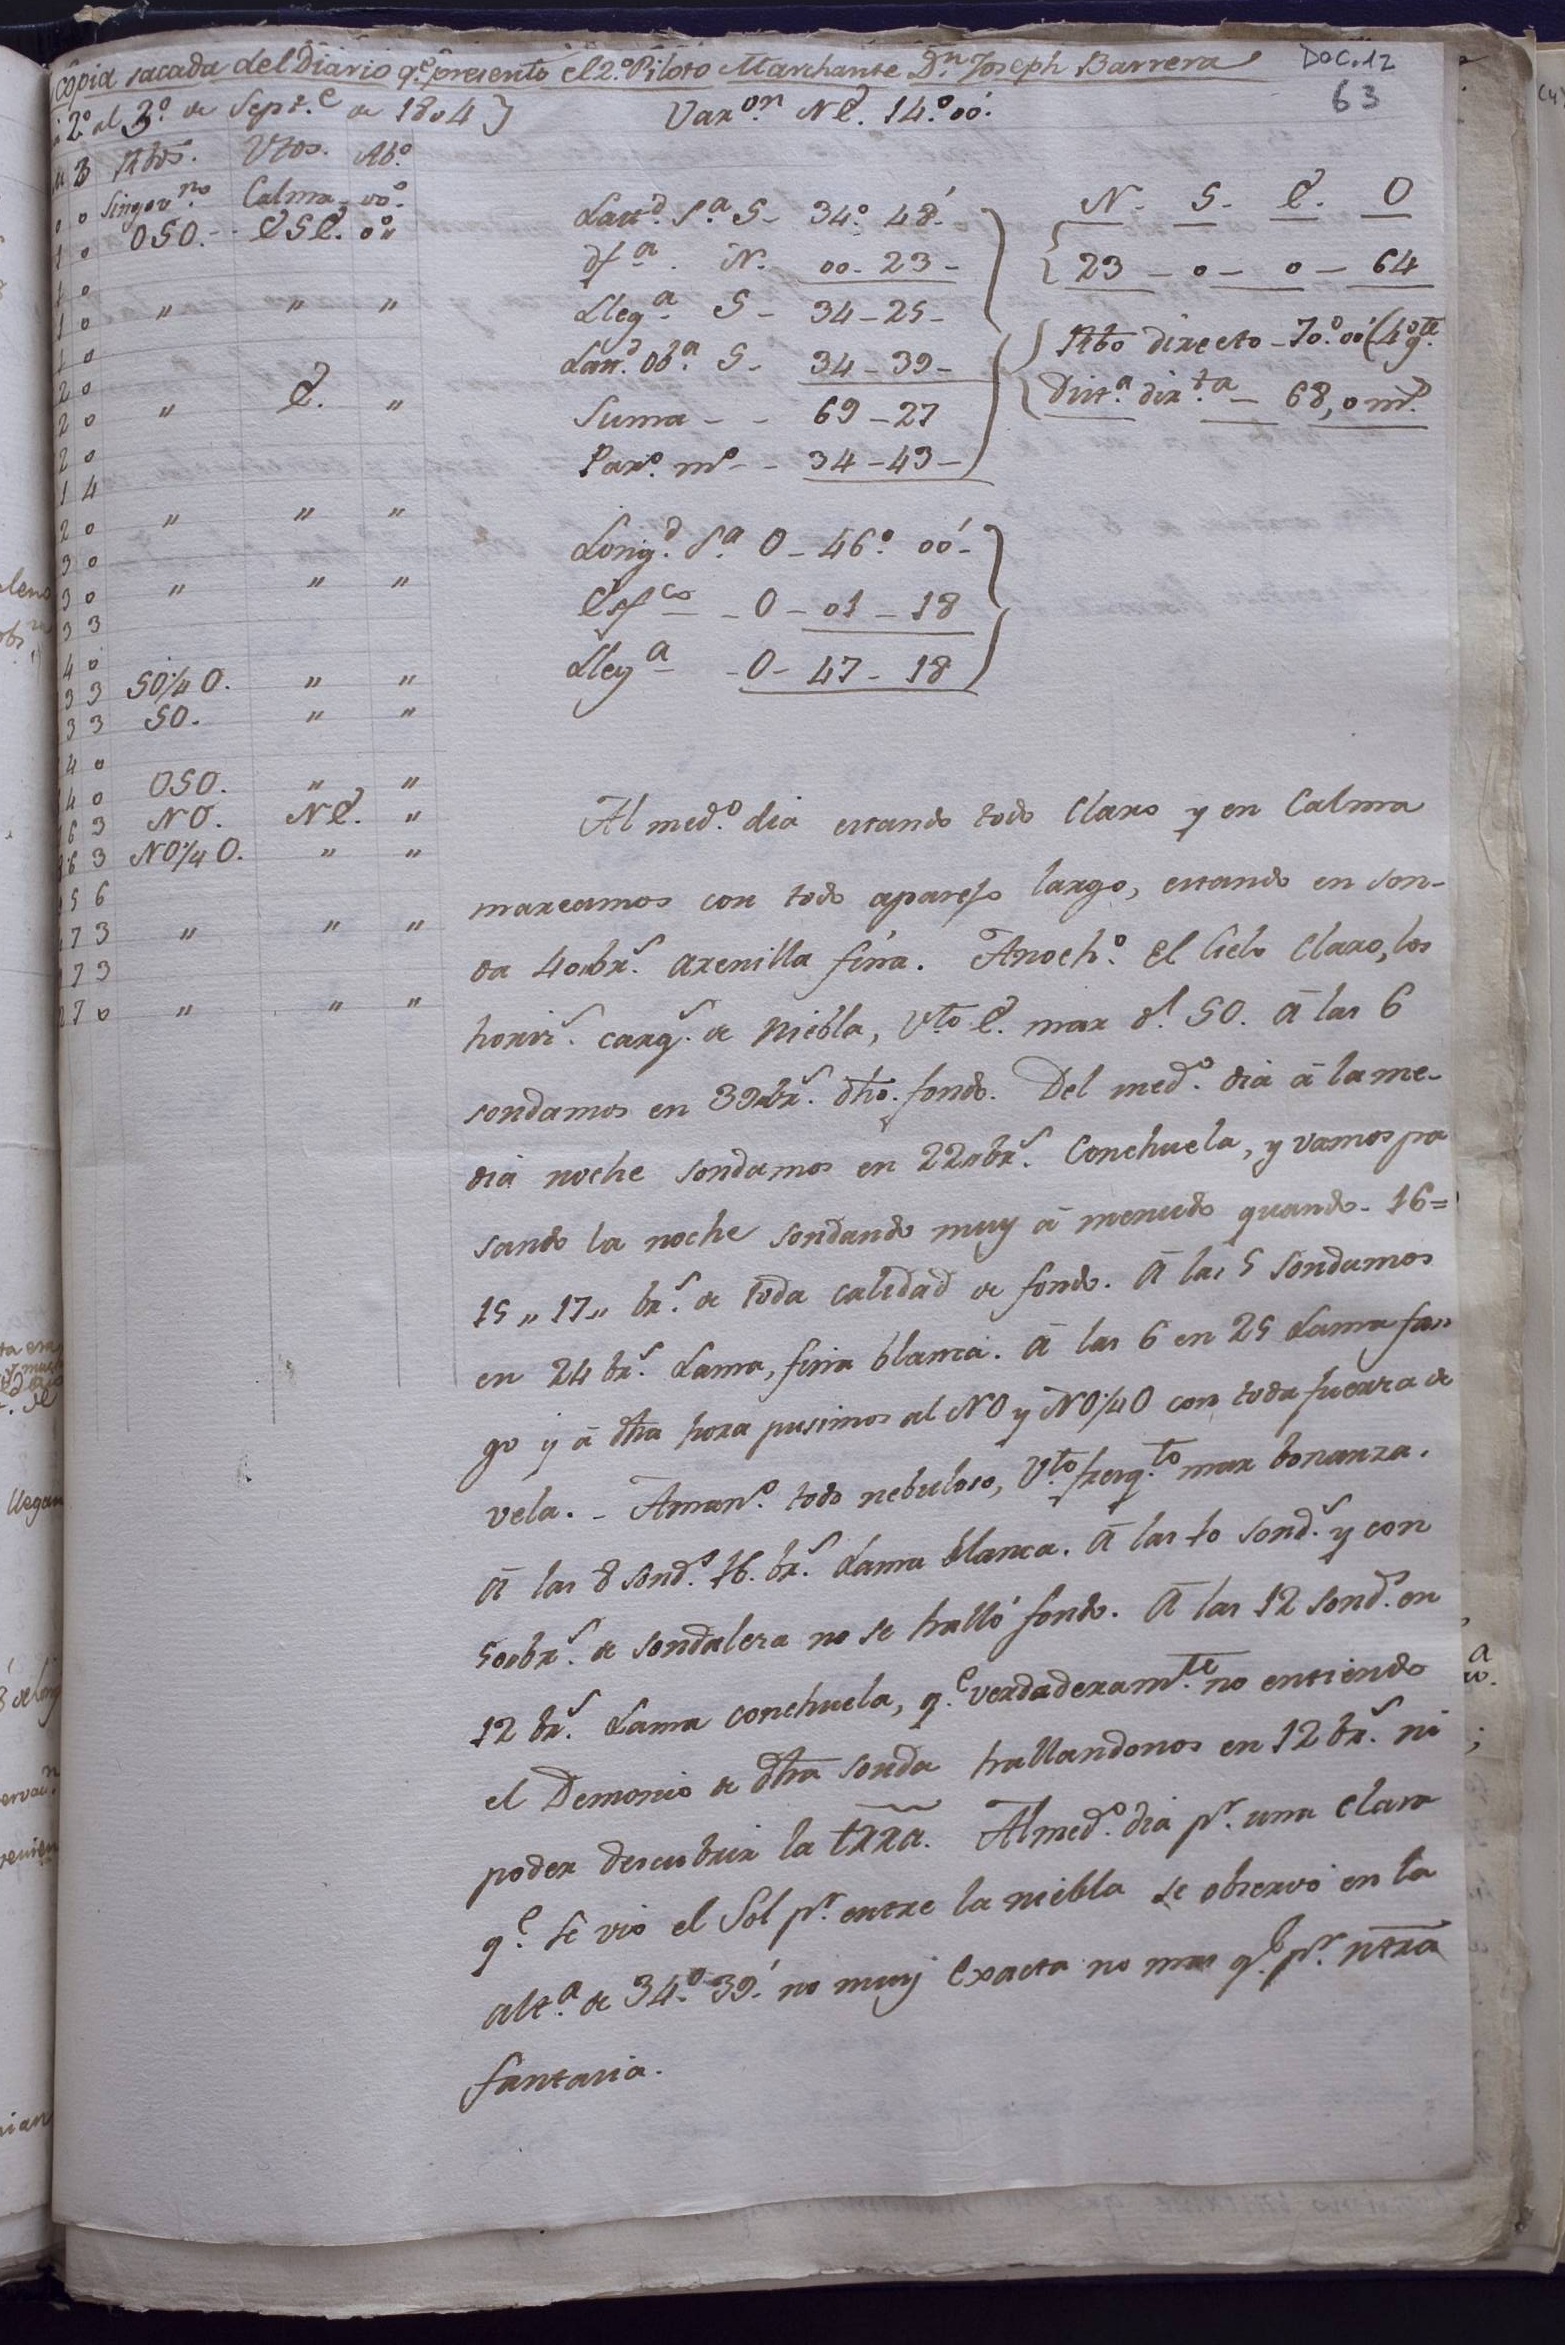 Copia sacada del Diario q.e presento el 2.o Piloto Marchante D.n Joseph Barrera
DOC. 12
63
2.o al 3.o de Sept.e de 1804
Var.on NE. 14.o 00.'
M B Rbos. Vtos. Ab.o
0 0 Singov.no Calma 00.o
1 0 OSO. ESE. 0.o "
1 0
1 0 " " "
1 0
2 0
2 0 " E. "
2 0
1 4
2 0 " " "
3 0
3 0 " " "
3 3
4 0
3 3 SO¼O. " "
3 3 SO. " "
4 0
4 0 OSO. " "
6 3 NO. NE. "
6 3 NO¼O. " "
5 6
7 3 " " "
7 3
7 0 " " "
Latt.d S.a S- 34.o 48.'
df.a N. 00-23-
Lleg.a S- 34-25-
Latt.d Ob.a S- 34-39-
Suma - - 69-27
Par.o m.o - - 34-43-
N- S- E. O
23 - 0 - 0 - 64
Rbo directo - 70.o 00' (4.o q.te
Dist.a dir.ta - 68,0 m.s
Long.d S.a O- 46.o 00'-
Esf.co - O- 01-18
Lleg.a - O- 47-18
Al med.o dia estando todo Claro y en Calma
mareamos con todo aparejo largo, estando en son-
da 40 br.s arenilla fina. Anoch.o el Cielo Claro, los
horiz.s carg.s de Niebla, V.to E. mar d.l SO. Â las 6
sondamos en 39 br.s dho. fondo. Del med.o dia â la me-
dia noche sondamos en 22 br.s Conchuela, y vamos pa
sando la noche sondando muy â menudo quando - 16=
15 " 17 " br.s de toda calidad de fondo. Â las 5 Sondamos
en 24 br.s Lama, fina blanca. Â las 6 en 25 Lama fan
go y â dha hora pusimos al NO y NO¼O con toda fuerza de
vela. - Aman.o todo nebuloso, V.to fresq.to mar bonanza.
Â las 8 sond.s 16. br.s Lama blanca. Â las 10 sond.s y con
50 br.s de sondalera no se halló fondo. Â las 12 sond.s en
12 br.s Lama conchuela, q.e verdaderam.te no entiendo
el Demonio de dha sonda hallandonos en 12 br.s ni
poder descubrir la trra. Al med.o dia p.r una clara
q.e se vio el Sol p.r entre la niebla se observó en la
alt.a de 34.o 39.' no muy Exacta no mas q.e p.r ntra
fantasia.